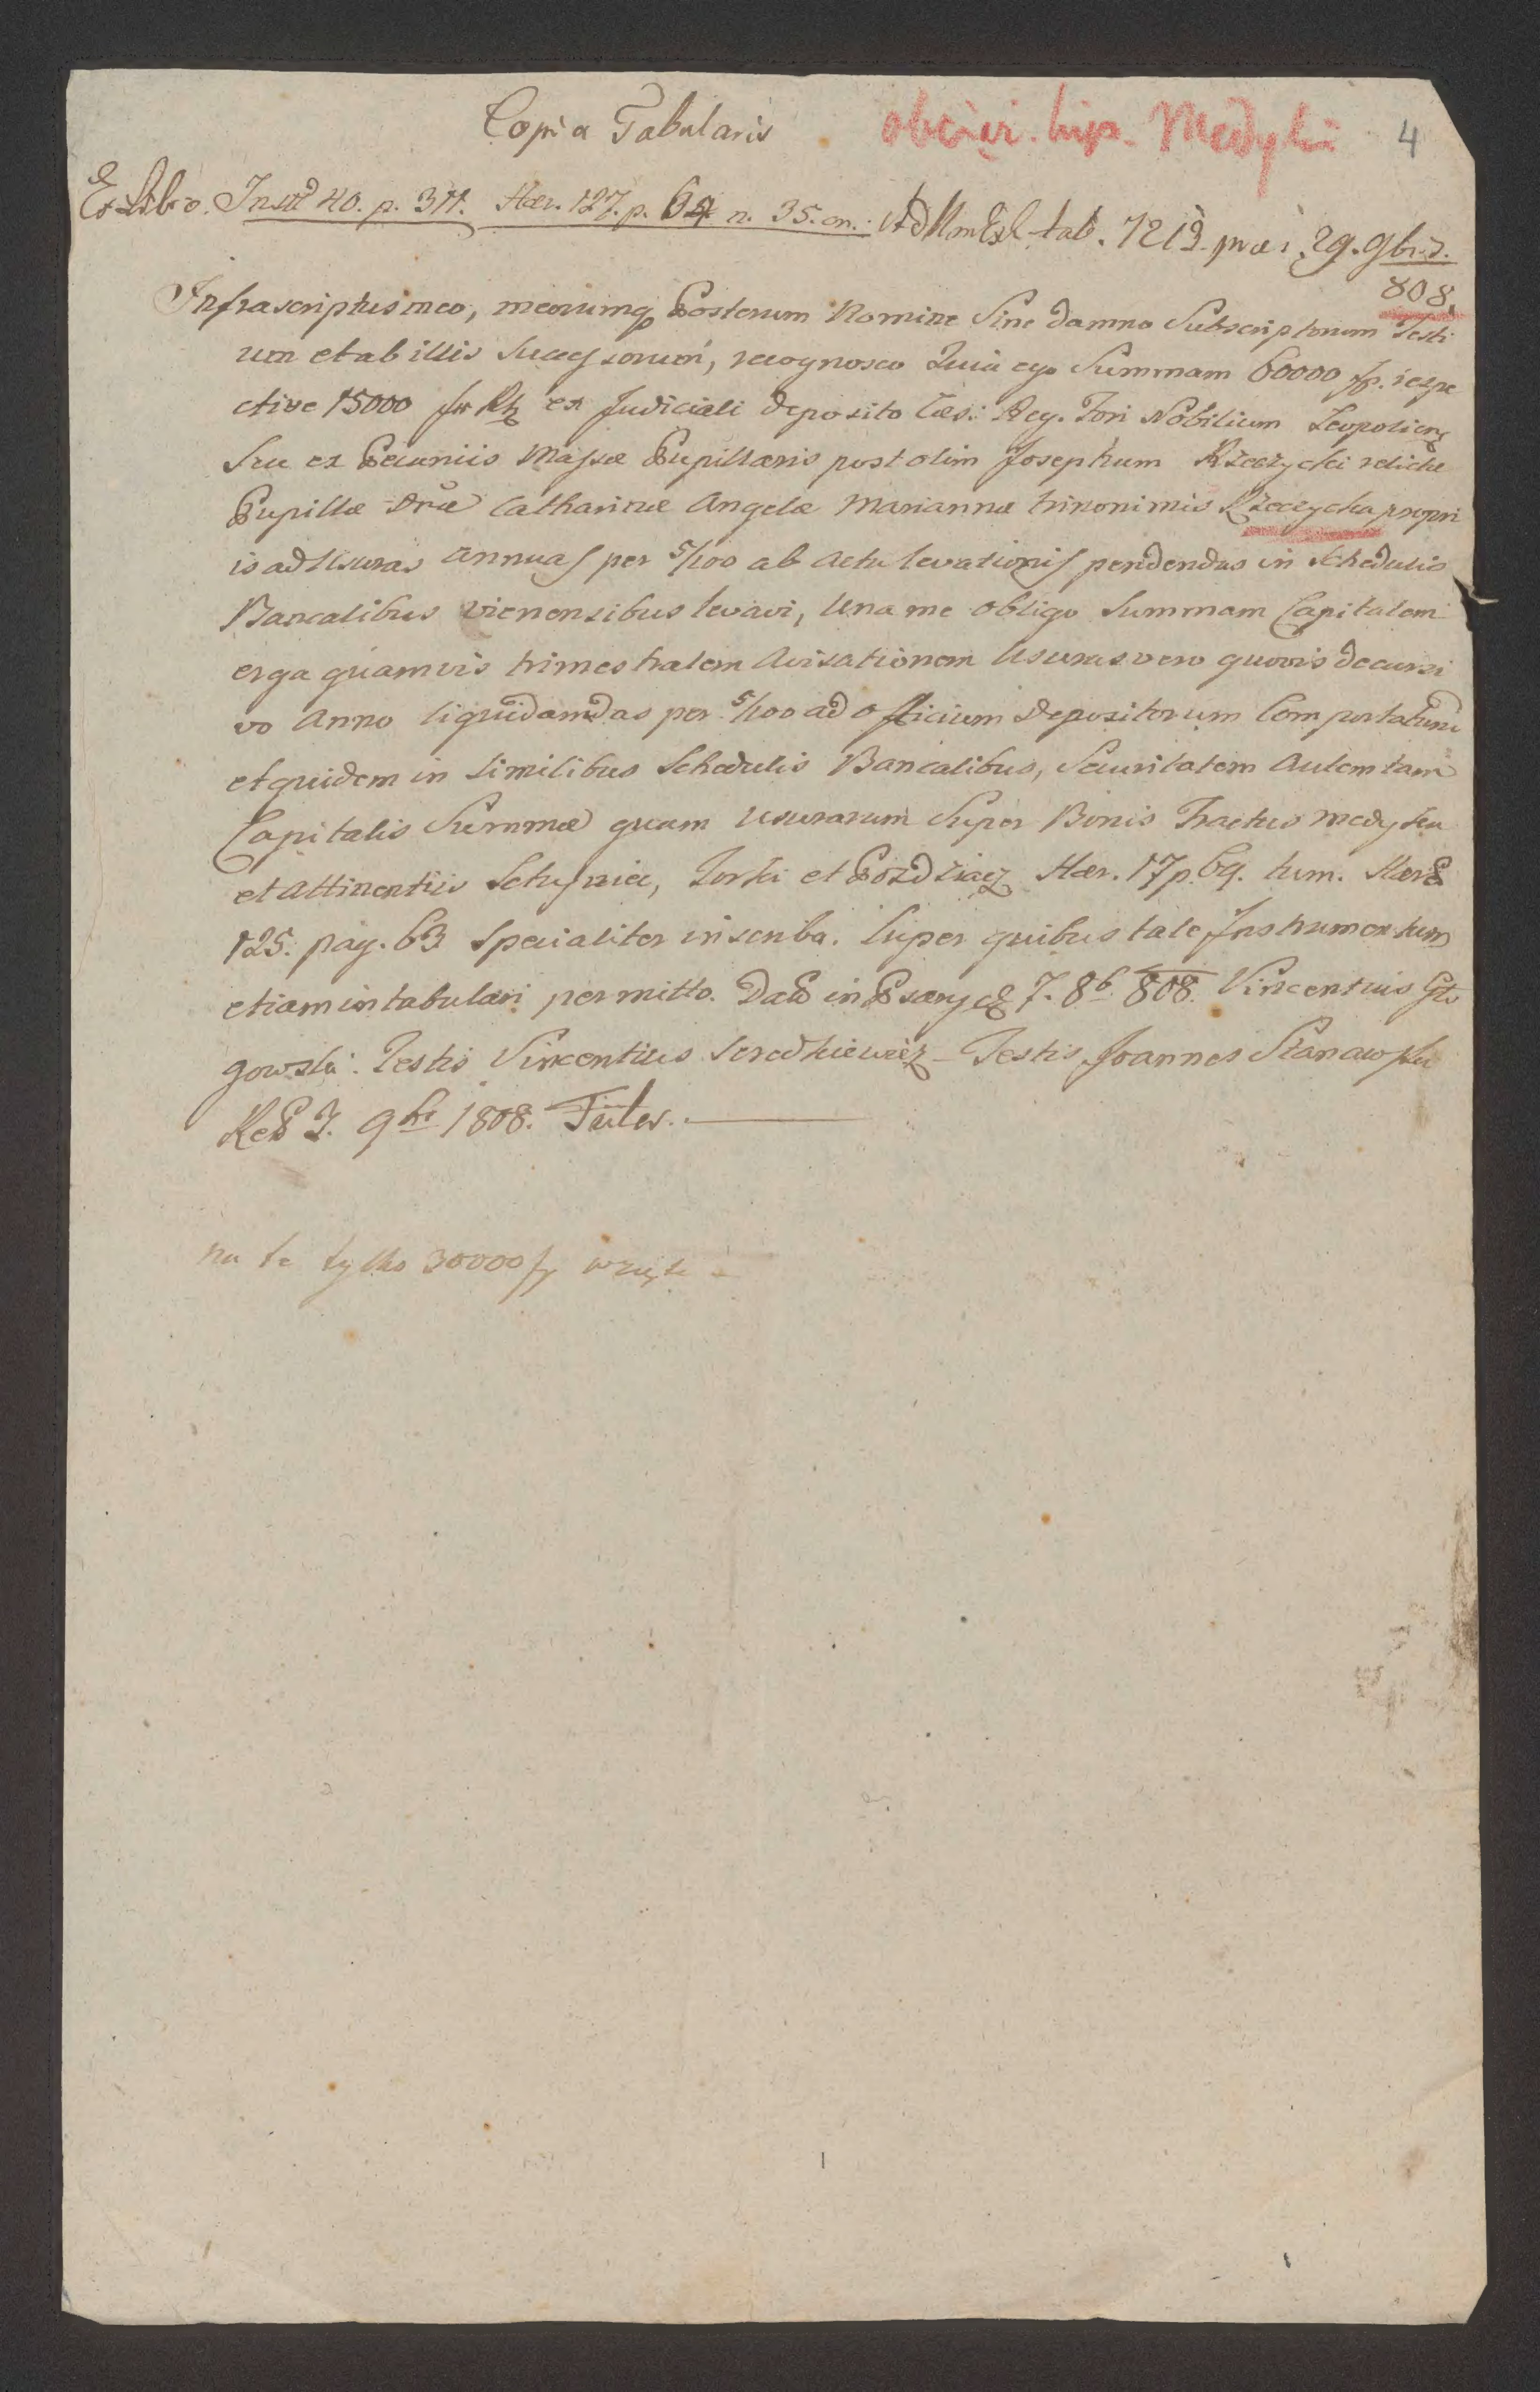 Copia Tabularis
4
Ex Libro Instr 40. p. 311. Hær. 127. p. 64 n. 35. on. Ad Num Exh tab. 7213 præs. 29. 9br.
808.
Infrascriptus meo, meorumq Posterum Nomine Sine damno Subscriptorum Testi
um et ab illis Successorum, recognosco Quia ego Summam 60000 fp. respe
ctive 15000 ex Judiciali deposito Cæs: Reg. Fori Nobilium Leopoliens
Seu ex Pecuniis Massæ Pupillaris post olim Josephum Rzeczycki relictæ
Pupillæ Catharinæ Angelæ Mariannæ trinonimis Rzeczycka propri
is ad Usuras annuas per 5/100 ab Actu levationis pendendas in Schedulis
Bancalibus vienensibus levavi, Una me obligo Summam Capitalem
erga quamvis trimestralem Avisationem Usuras vero quovis decursi
vo Anno liquidandas per 5/100 ad officium Depositorum Comportaturum
et quidem in similibus Schedulis Bancalibus, Securitatem Autem tam
Capitalis Summæ quam usurarum Super Bonis Tractus Medyka
et attinentiis Torki et Pozdziacz Hær. 17 p. 69. tum. Hær
125. pag. 63 specialiter inscribo. Super quibus tale Instrumentum
etiam intabulari permitto. Dat in 7. 8b. 808. Vincentius Gło
gowski. Testis Vincentius Seredkiewicz – Testis Joannes Stanawski
9br 1808.
na to tylko 30000 wzięte –